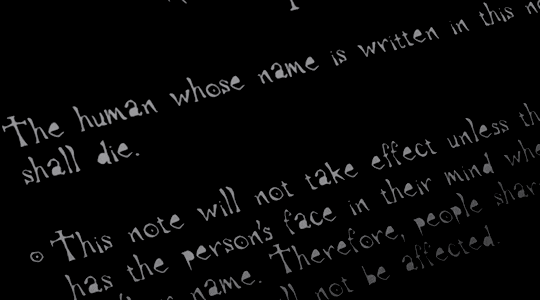 The human whose name is written in this
shall die.
This note will not take effect unless
has the person's face in their mind
name. Therefore, people
not be affected.